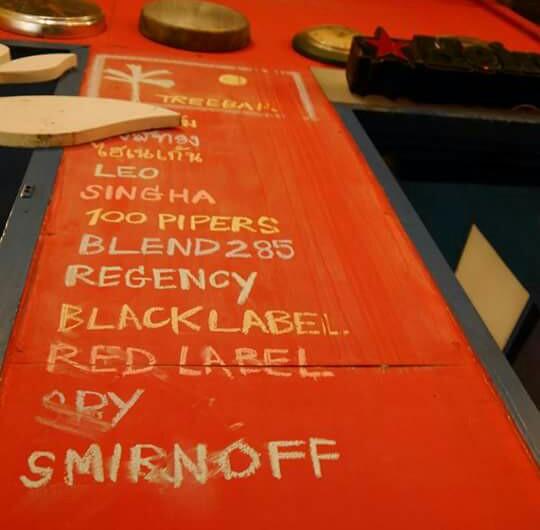 TREEBAR
ไฮเนเก้น
LEO
SINGHA
100 PIPERS
BLEND 285
REGENCY
BLACK LABEL.
RED LABEL
SMIRNOFF